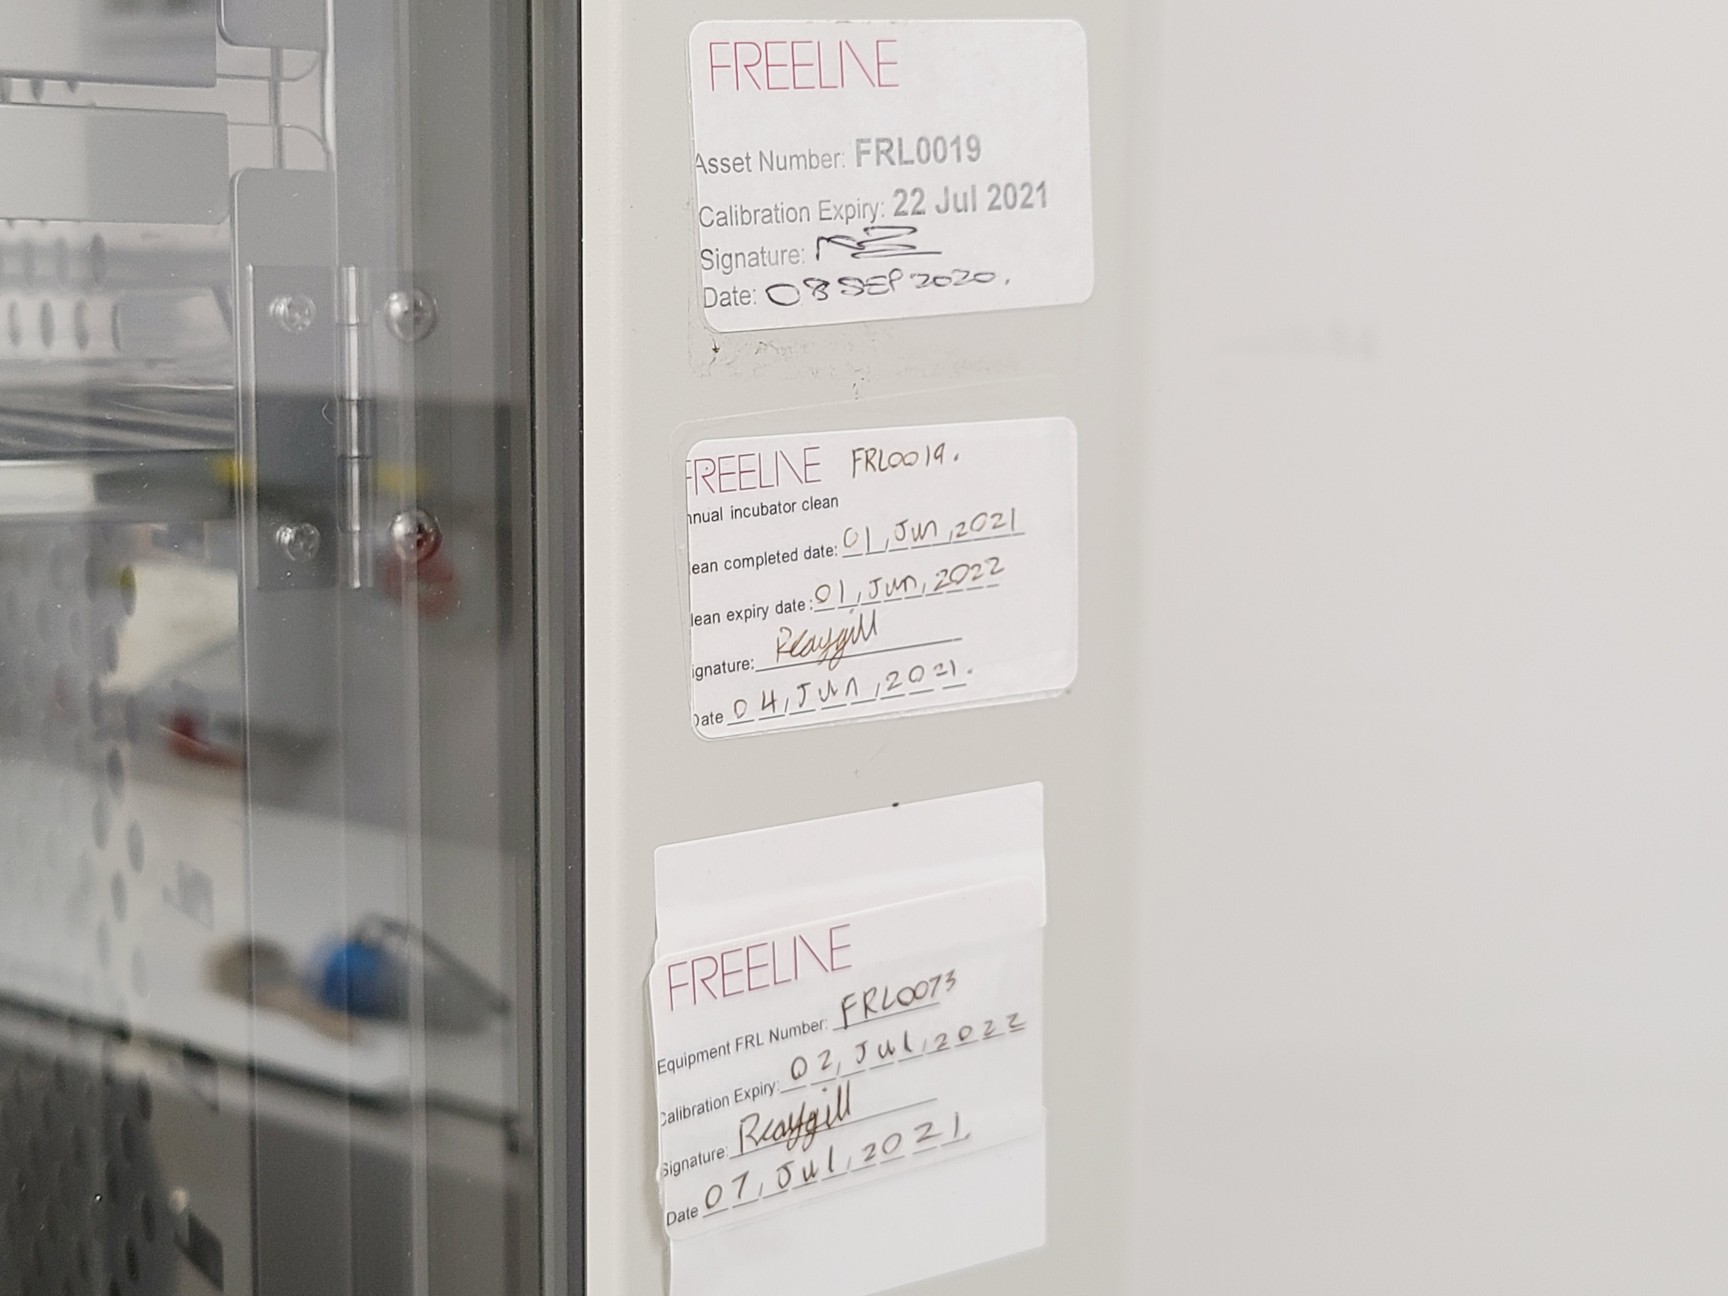 FREELINE
Asset Number: FRL0019
Calibration Expiry: 22 Jul 2021
Signature:
Date: 08 SEP 2020.
FREELINE FRL0019.
nnual incubator clean
ean completed date: 01, Jun, 2021
lean expiry date: 01, Jun, 2022
ignature: Reaygill
Date 04, Jun, 2021.
FREELINE
Equipment FRL Number: FRL0073
Calibration Expiry: 02, Jul, 2022
Signature: Reaygill
Date 07, Jul, 2021